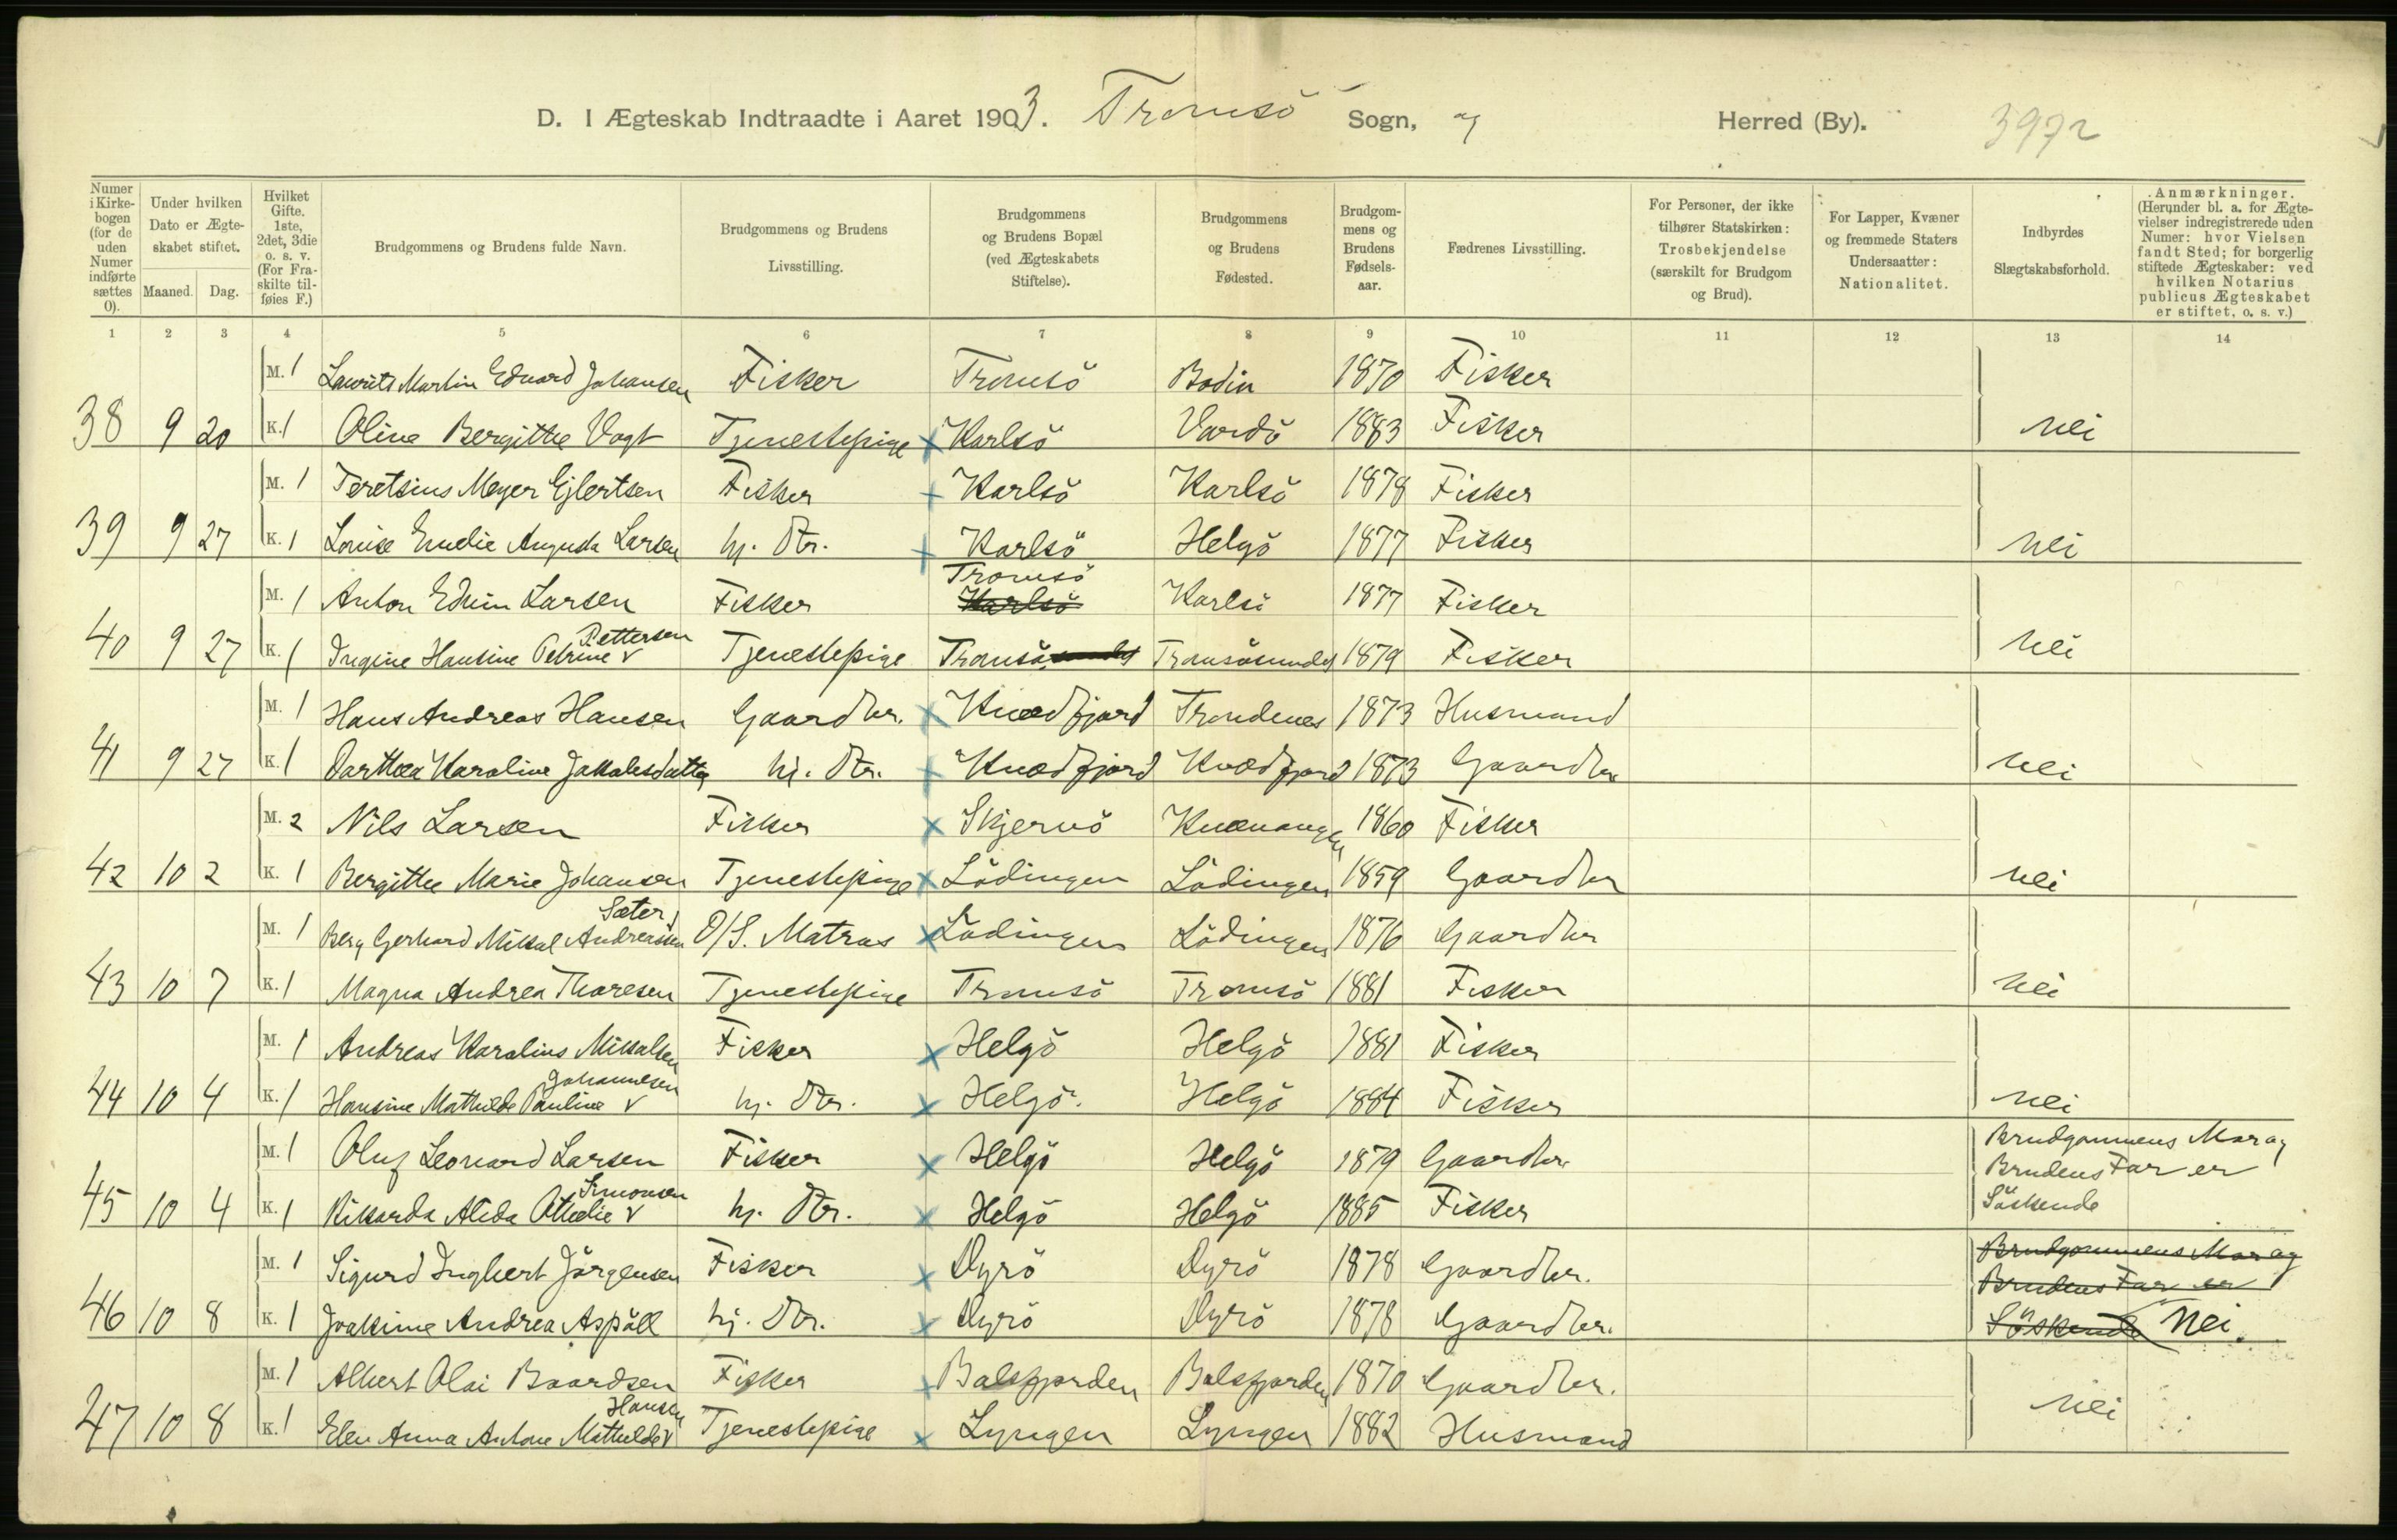 D. I Ægteskab Indtraadte i Aaret 1903. Tromsö Sogn, og Herred (By). 3972
Numer i Kirke-bogen (for de uden Numer indførte sættes 0). Under hvilken Dato er Ægte-skabet stiftet. Maaned. Dag. Hvilket Gifte. 1ste, 2det, 3die o. s. v. (For Fra-skilte til-føies F.) Brudgommens og Brudens fulde Navn. Brudgommens og Brudens Livsstilling. Brudgommens og Brudens Bopæl (ved Ægteskabets Stiftelse). Brudgommens og Brudens Fødested. Brudgom-mens og Brudens Fødsels-aar. Fædrenes Livsstilling. For Personer, der ikke tilhører Statskirken: Trosbekjendelse (særskilt for Brudgom og Brud). For Lapper, Kvæner og fremmede Staters Undersaatter: Nationalitet. Indbyrdes Slægtskabsforhold. Anmærkninger. (Herunder bl. a. for Ægte-vielser indregistrerede uden Numer: hvor Vielsen fandt Sted; for borgerlig stiftede Ægteskaber: ved hvilken Notarius publicus Ægteskabet er stiftet, o. s. v.)
1 2 3 4 5 6 7 8 9 10 11 12 13 14
M. 1 Laurits Martin Edvard Johansen Fisker Tromsö Bodin 1870 Fisker
38 9 20 K. 1 Oline Bergitthe Vogt Tjenestepige x Karlsö Vardö 1883 Fisker nei
M. 1 Teretsius Meyer Ejlertsen Fisker x Karlsö Karlsö 1878 Fisker
39 9 27 K. 1 Louise Emelie Augusta Larsen hj. Dtr. x Karlsö Helgö 1877 Fisker nei
Tromsö
M. 1 Anton Edvin Larsen Fisker Karlsö Karlsö 1877 Fisker
Pettersen
40 9 27 K. 1 Ingine Hansine Petrine v Tjenestepige Tromsösundet Tromsösundet 1879 Fisker nei
M. 1 Hans Andreas Hansen Gaardbr. x Kvædfjord Trondenes 1873 Husmand
41 9 27 K. 1 Darthea Karoline Jakobsdatter hj. Dtr. x Kvædfjord Kvædfjord 1873 Gaardbr nei
M. 2 Nils Larsen Fisker x Skjervö Kvænangen 1860 Fisker
42 10 2 K. 1 Bergitthe Marie Johansen Tjenestepige x Lödingen Lödingen 1859 Gaardbr nei
Sæter
M. 1 Berg Gerhard Mikal Andreassen D/S. Matros x Lödingen Lödingen 1876 Gaardbr
43 10 7 K. 1 Magna Andrea Thoresen Tjenestepige Tromsö Tromsö 1881 Fisker nei
M. 1 Andreas Karolius Mikalsen Fisker x Helgö Helgö 1881 Fisker
Johannesen
44 10 4 K. 1 Hansine Mathilde Pauline v hj. Dtr. x Helgö. Helgö 1884 Fisker nei
M. 1 Oluf Leonard Larsen Fisker x Helgö Helgö 1879 Gaardbr. Brudgommens Mor og
Brudens Far er
Simonsen
45 10 4 K. 1 Rikarda Alida Othelie v hj. Dtr. x Helgö Helgö 1885 Fisker Söskende
M. 1 Sigurd Ingbert Jörgensen Fisker x Dyrö Dyrö 1878 Gaardbr. Brudgommens Mor og
Brudens Far er
46 10 8 K. 1 Joakime Andrea Aspöll hj. Dtr. x Dyrö Dyrö 1878 Gaardbr. Söskende Nei.
M. 1 Albert Olai Baardsen Fisker x Balsfjorden Balsfjorden 1870 Gaardbr.
Hansen
47 10 8 K. 1 Elen Anna Antone Mathilde v Tjenestepige x Lyngen Lyngen 1882 Husmand nei